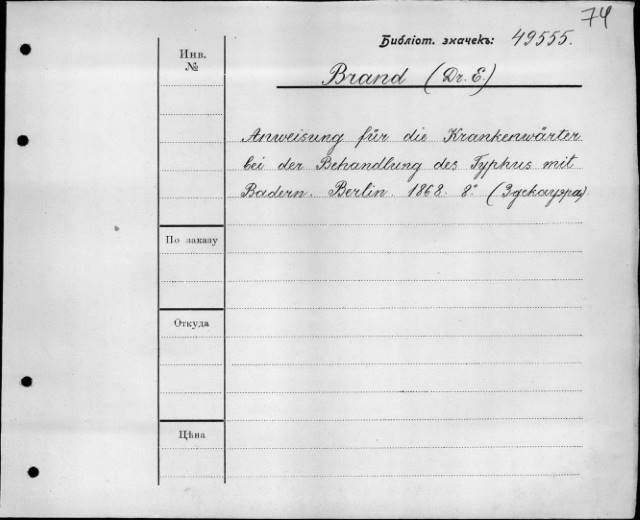 74
Библіот. значекъ: 49555.
Инв.
№
Brand (Dr. E.)
Anweisung für die Krankenwärter
bei der Behandlung des Typhus mit
Badern. Berlin 1868. 8°
По заказу
Откуда
Цѣна